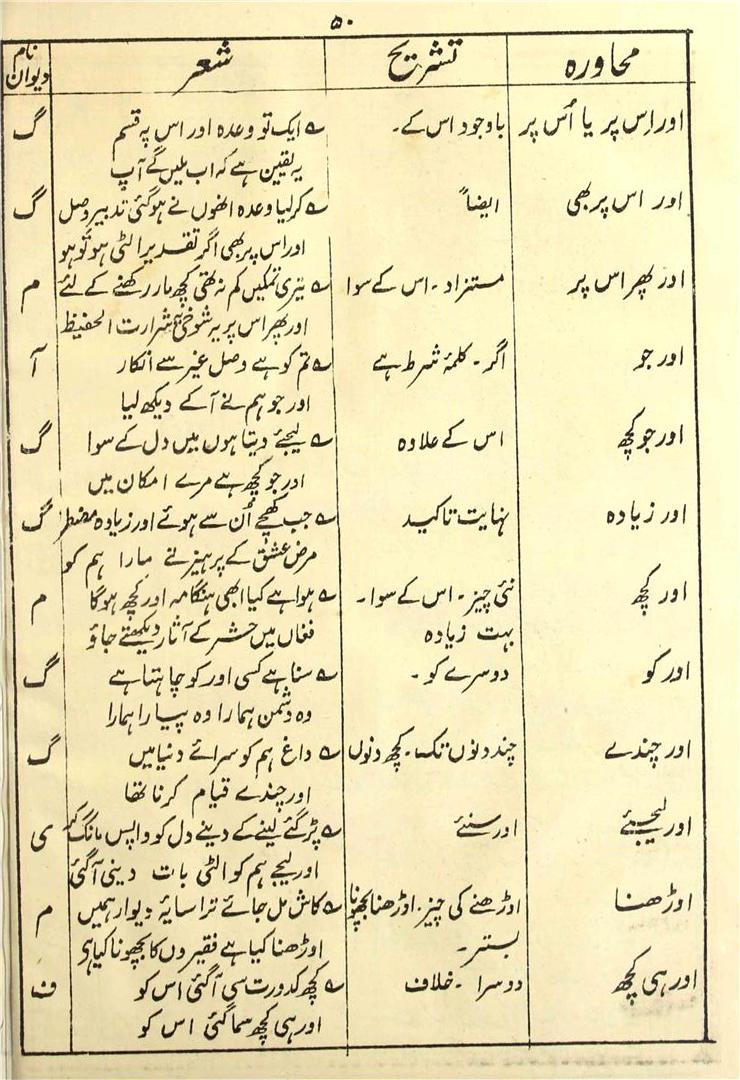 ۵۰
محاورہ تشریح شعر نام دیوان
اور اِس پر یا اُس پر باوجود اس کے۔ ؎ ایک تو وعدہ اور اس پہ قسم گ
یہ یقین ہے کہ اب ملیں گے آپ
اور اس پر بھی ایضاً ؎ کر لیا وعدہ انھوں نے ہو گئی تدبیر وصل گ
اور اس پر بھی اگر تقدیر الٹی ہو تو ہو
اور پھر اس پر مستزاد۔ اس کے سوا ؎ تیری تمکیں کم نہ تھی کچھ مار رکھنے کے لئے م
اور پھر اس پر یہ شوخی شرارت الحفیظ
اور جو اگر۔ کلمۂ شرط ہے ؎ تم کو ہے وصل غیر سے انکار آ
اور جو ہم نے آ کے دیکھ لیا
اور جو کچھ اس کے علاوہ ؎ لیجئے دیتا ہوں میں دل کے سوا گ
اور جو کچھ ہے مرے امکان میں
اور زیادہ نہایت تاکید ؎ جب کھچے اُن سے ہوئے اور زیادہ مضطر گ
مرض عشق کے پرہیز نے مارا ہم کو
اور کچھ نئی چیز۔ اس کے سوا۔ ؎ ہوا ہے کیا ابھی ہنگامہ اور کچھ ہوگا م
بہت زیادہ فغاں میں حشر کے آثار دیکھتے جاؤ
اور کو دوسرے کو۔ ؎ سنا ہے کسی اور کو چاہتا ہے گ
وہ دشمن ہمارا وہ پیارا ہمارا
اور چندے چند دنوں تک۔ کچھ دنوں ؎ داغ ہم کو سرائے دنیا میں گ
اور چندے قیام کرنا تھا
اور لیجئے اور سنئے ؎ پڑ گئے لینے کے دینے دل کو واپس مانگ کر ی
اور لیجے ہم کو الٹی بات دینی آ گئی
اوڑھنا اوڑھنے کی چیز۔ اوڑھنا بچھونا ؎ کاش مل جائے ترا سایۂ دیوار ہمیں م
بستر۔ اوڑھنا کیا ہے فقیروں کا بچھونا کیا ہی
اور ہی کچھ دوسرا۔ خلاف ؎ کچھ کدورت سی آ گئی اس کو ف
اور ہی کچھ سما گئی اس کو